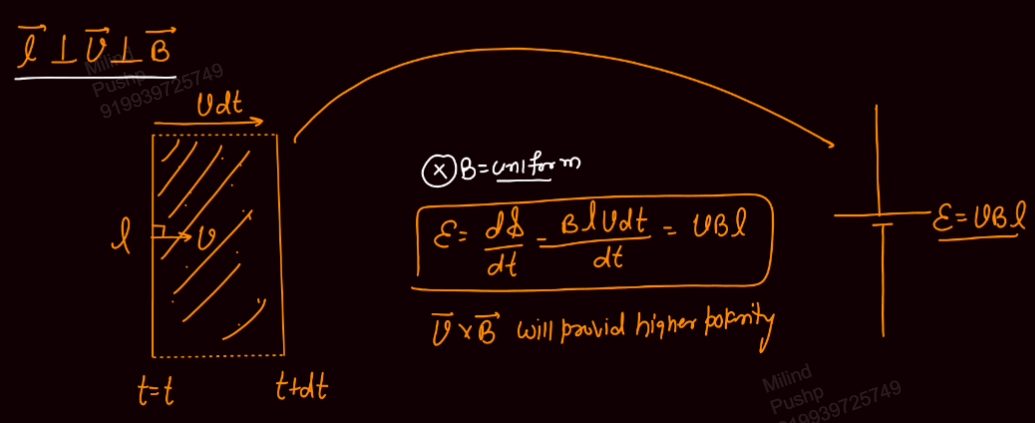 l⃗ ⊥ v⃗ ⊥ B⃗
Milind
Pushp
919939725749
vdt
l
v
t=t
t+dt
⊗ B=uniform
ε = dϕ/dt = Blvdt/dt = vBl
v⃗ × B⃗ will provid higher polarity
ε=vBl
Milind
Pushp
919939725749